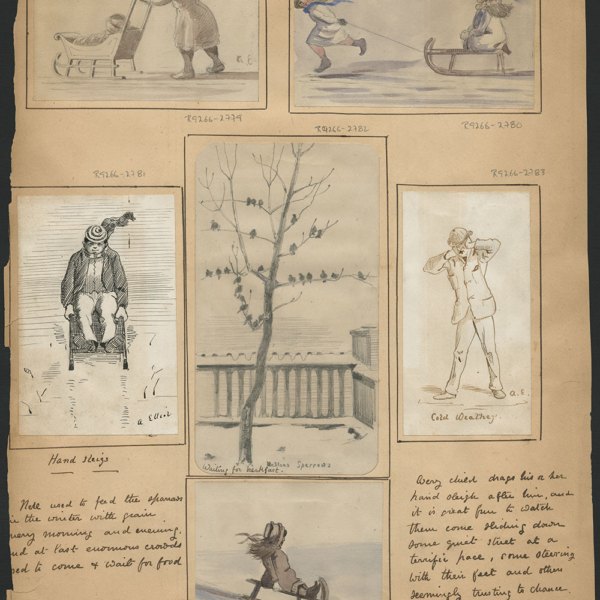 R9266-2779
R9266-2782
R9266-2780
R9266-2781
R9266-2783
a. Elliot
a. E.
Cold Weather.
Waiting for breakfast. Nellies Sparrows
Hand sleigs
Nell used to feed the sparrows
in the winter with grain
every morning and evening,
and at last enormous crowds
used to come & wait for food
Every child drags his or her
hand sleigh after him, and
it is great fun to watch
them come sliding down
some quiet street at a
terrific pace, some steering
with their feet and others
seemingly trusting to chance